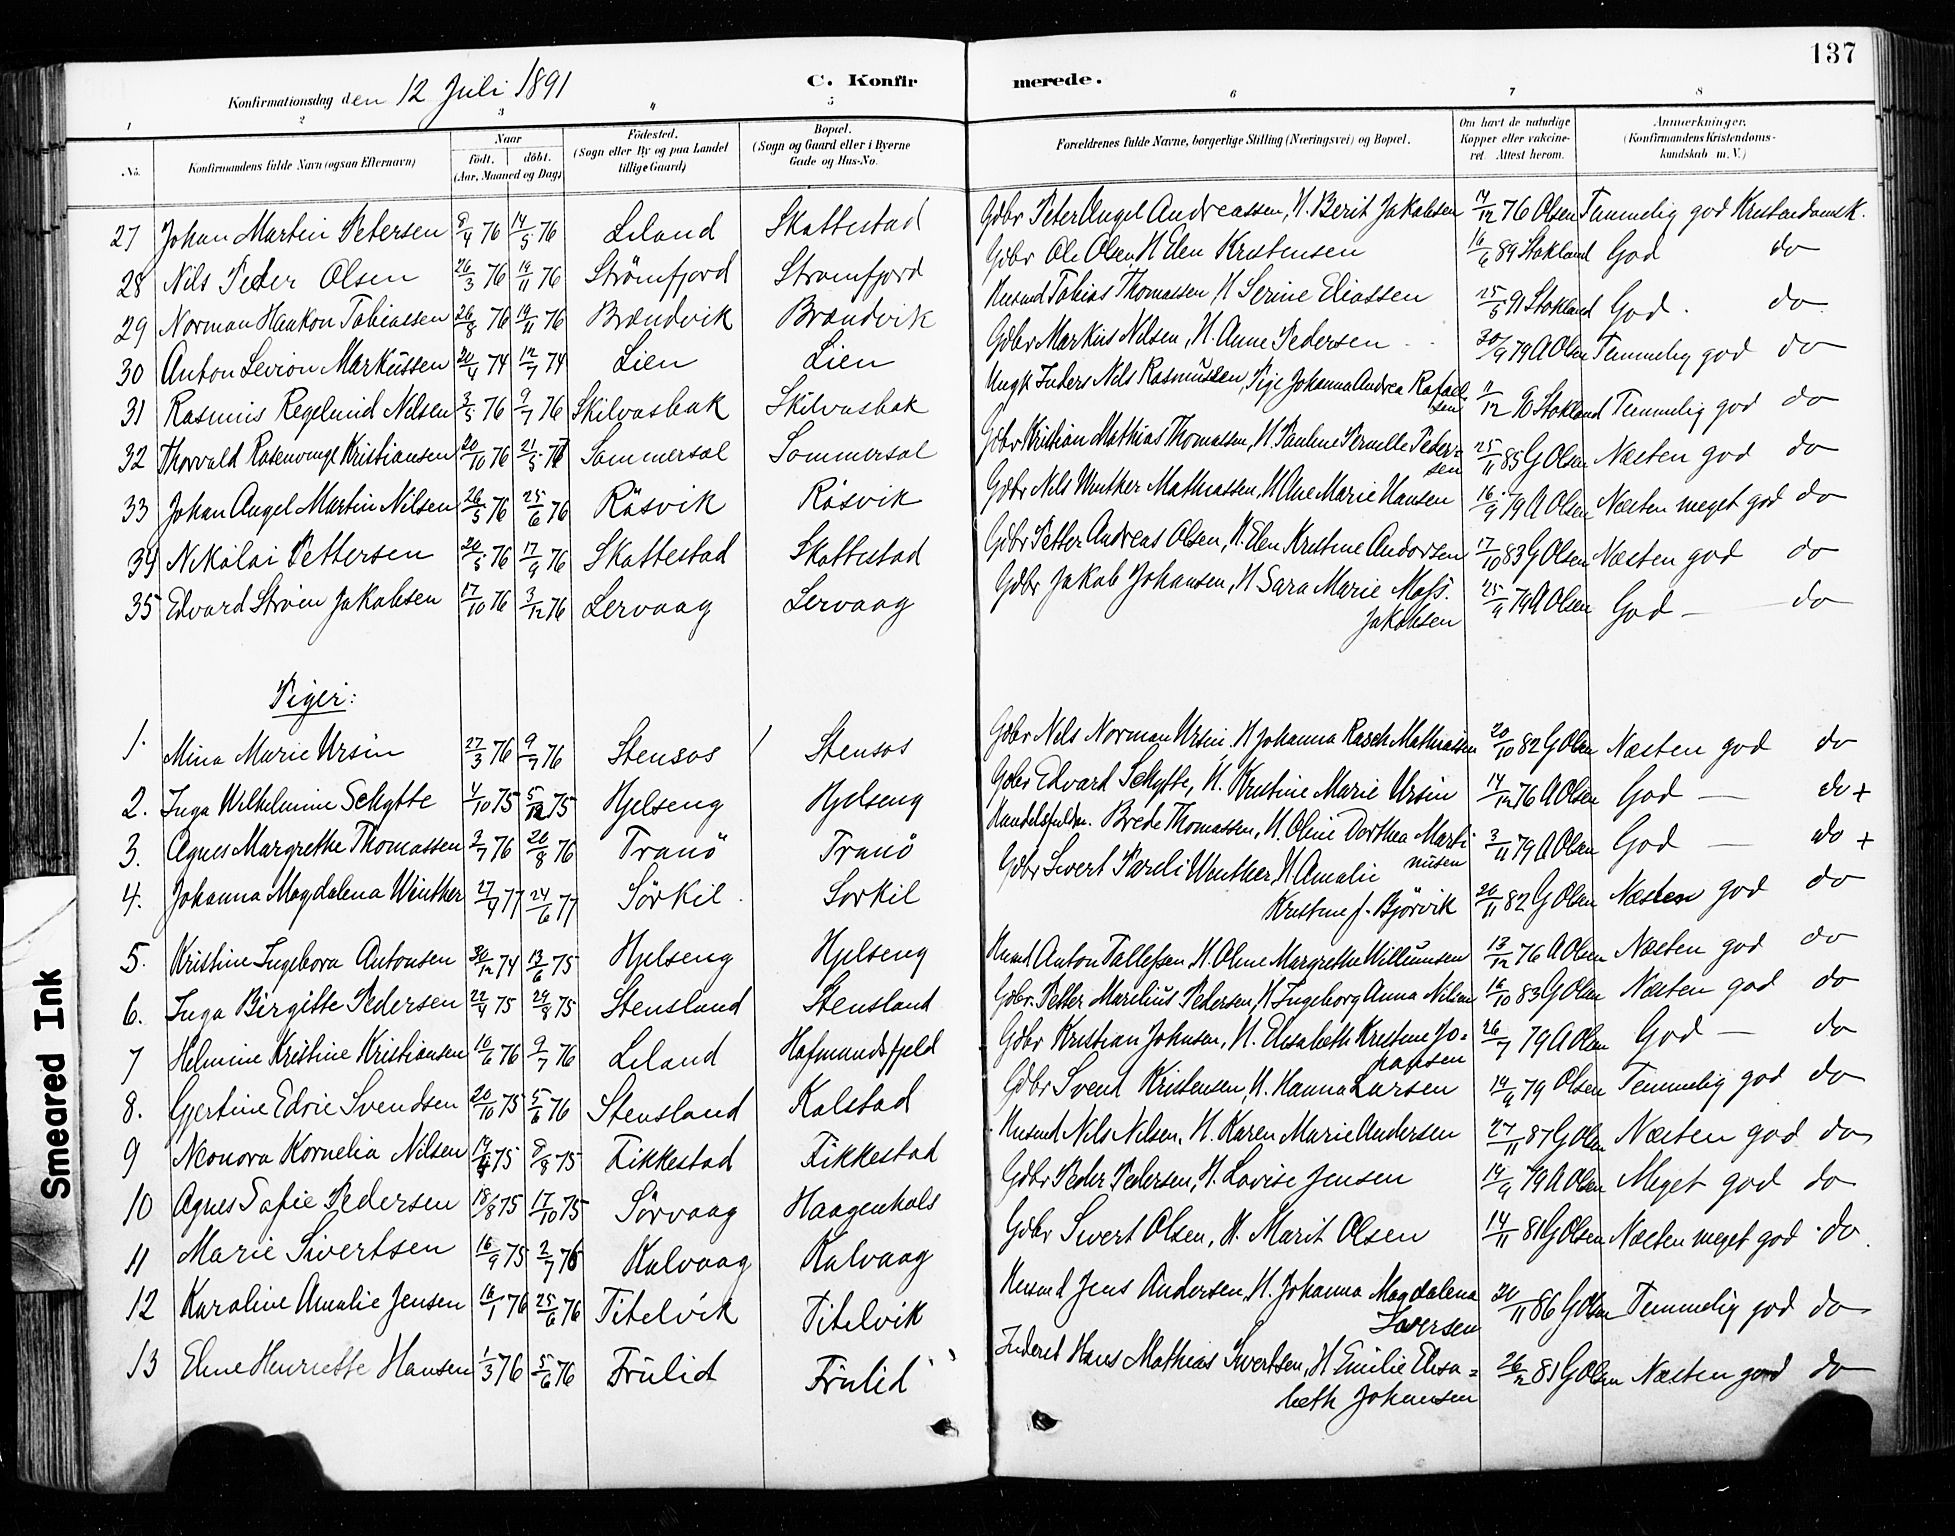 137
Konfirmationsdag den 12 Juli 1891
C. Konfirmerede.
1 2 3 4 5 6 7 8
No. Konfirmandens fulde Navn (ogsaa Efternavn) Naar Født. døbt. (Aar, Maaned og Dag) Fødested. (Sogn eller By og paa Landet tillige Gaard) Bopæl. (Sogn og Gaard eller i Byerne Gade og Hus-No. Forældrenes fulde Navne, borgerlige Stilling (Næringsvei) og Bopæl. Om havt de naturlige Kopper eller vakcineret. Attest herom. Anmærkninger. (Konfirmandens Kristendomskundskab m. V.)
27 Johan Martin Petersen 9/4 76 14/5 76 Leland Skattestad Gdbr Peter Angel Andreassen, H. Berit Jakobsen 14/12 76 Olsen Temmelig god Kristendomsk.
28 Nils Peder Olsen 26/3 76 19/11 76 Strömfjord Strömfjord Gdbr Ole Olsen, H Elen Kristensen 16/6 89 Stokland God do
29 Norman Haakon Tobiassen 26/8 76 19/11 76 Brændvik Brændvik Husmd Tobias Thomassen, H Serine Eliassen 25/5 91 Stokland God. do
30 Anton Levion Markussen 20/4 74 12/7 74 Lien Lien Gdbr Markus Nilsen, H. Anne Pedersen 30/9 79 A Olsen Temmelig god do
31 Rasmus Regelund Nilsen 3/5 76 9/7 76 Skilvasbak Skilvasbak Ungk. Inders Nils Rasmussen, Pige Johanna Andrea Rafaelsen 11/12 90 Stokland Temmelig god do
32 Thorvald Rosenvinge Kristiansen 20/10 76 21/5 77 Sommersel Sommersel Gdbr Kristian Mathias Thomassen, H. Pauline Pernelle Pedersen 25/11 85 G Olsen Næsten god do
33 Johan Angel Martin Nilsen 26/5 76 25/6 76 Råsvik Råsvik Gdbr Nils Winther Mathiassen, H Ane Marie Hansen 16/9 79 A Olsen Næsten meget god do
34 Nikolai Pettersen 20/5 76 17/9 76 Skattestad Skattestad Gdbr Petter Andreas Olsen, H. Elen Kristine Andorsen 17/10 83 G Olsen Næsten god do
35 Edvard Strøm Jakobsen 17/10 76 3/12 76 Lervaag Lervaag Gdbr Jakob Johansen, H Sara Marie Mass. Jakobsen 25/9 79 A Olsen God — do
Piger:
1. Mina Marie Ursin 27/3 76 9/7 76 Stensos Stensos Gdbr Nils Norman Ursin, H Johanna Rasch Mathiassen 20/10 82 G Olsen Næsten god do
2. Inga Wilhelmine Schytte 4/10 75 5/12 75 Hjelseng Hjelseng Gdbr Edvard Schytte, H. Kristine Marie Ursin 14/12 76 A Olsen God — do +
3. Agnes Margrethe Thomassen 2/7 76 20/8 76 Tranö Tranö Handelsfuldm. Brede Thomassen, H. Oline Dorthea Martinusen 3/11 79 A Olsen God — do +
4. Johanna Magdalena Winther 27/4 77 24/6 77 Sörkil Sorkil Gdbr Sivert Pareli Winther, H Amalie Kristine f. Björvik 20/11 82 G Olsen Næsten god do
5. Kristine Ingebora Antonsen 30/12 74 13/6 75 Hjelseng Hjelseng Husmd Anton Tollefsen, H. Oline Margrethe Willumsen 13/12 76 A Olsen Næsten god do
6. Inga Birgitte Pedersen 22/4 75 29/8 75 Stensland Stensland Gdbr. Petter Marelius Pedersen, H Ingeborg Anna Nilsen 16/10 83 G Olsen Næsten god do
7 Helmine Kristine Kristiansen 10/6 76 9/7 76 Leland Hofmandsfjeld Gdbr Kristian Johnsen, H. Elisabeth Kristine Johansen 26/7 79 A Olsen God — do
8. Gjertine Edvie Svendsen 20/10 75 5/6 76 Stensland Kalstad Gdbr Svend Kristensen, H. Hanna Larsen 19/9 79 Olsen Temmelig god do
9 Neonora Kornelia Nilsen 14/4 75 8/8 75 Fikkestad Fikkestad Husmd Nils Nilsen, H. Karen Marie Andersen 27/11 87 G Olsen Næsten god do
10 Agnes Sofie Pedersen 18/8 75 17/10 75 Sörvaag Haagenhols Gdbr Peder Pedersen, H. Lovise Jensen 16/9 79 A Olsen Meget god do
11 Marie Sivertsen 16/9 75 2/7 76 Kalvaag Kalvaag Gdbr Sivert Olsen, H. Marit Olsen 14/11 81 G Olsen Næsten meget god do
12 Karoline Amalie Jensen 16/1 76 25/6 76 Titelvik Titelvik Husmd Jens Andersen, H. Johanna Magdalena Iversen 20/11 86 G Olsen Temmelig god do
13 Eline Henriette Hansen 1/3 76 5/6 76 Frulid Frulid Inderst Hans Mathias Sivertsen, H Emilie Elisabeth Johansen 26/2 81 G Olsen Næsten god do
Smeared Ink